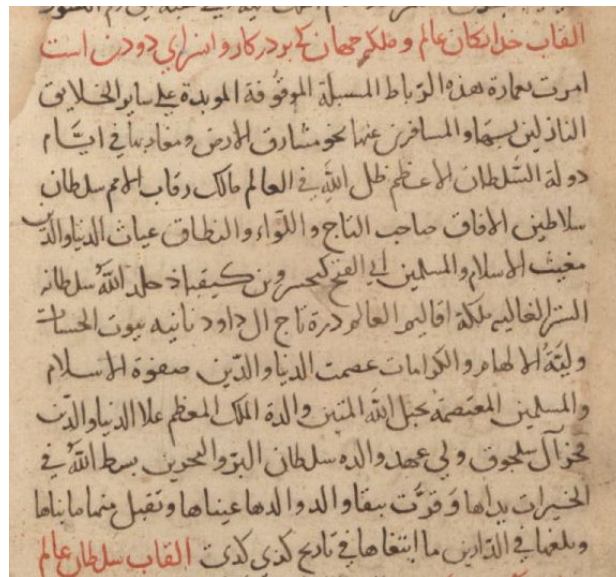 القاب خدایکان عالم و ملکه جهان که بر در کاروانسرای دودن است
امرت بعمارة هذه الرباط المسبلة الموقوفة الموبدة على ساير الخلايق
النازلين بها والمسافرين عنها نحو مشارق الارض ومغاربها في ايام
دولة السلطان الاعظم ظل الله في العالم مالك رقاب الامم سلطان
سلاطين الافاق صاحب التاج واللواء والنطاق غياث الدنيا والدين
مغيث الاسلام والمسلمين ابي الفتح كيخسرو بن كيقباذ خلد الله سلطانه
الستر العاليه ملكة اقاليم العالم درة تاج ال داود بانيه بيوت الحسنات
وليّة الالهام والكرامات عصمت الدنيا والدين صفوة الاسلام
والمسلمين المعتصمة بحبل الله المتين والدة الملك المعظم علا الدنيا والدين
فخر آل سلجوق ولي عهد والده سلطان البر والبحرين بسط الله في
الخيرات يداها وقرّت ببقا ولدها عيناها وتقبل منها ما بناها
وبلغها في الدارين ما ابتغاها في تاريخ كذي كذى القاب سلطان عالم